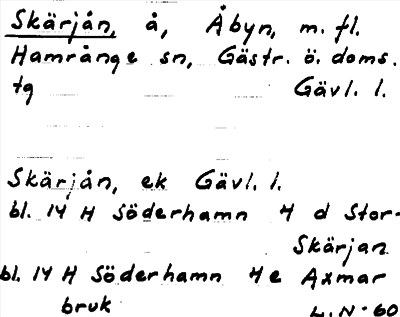 Skärjån, å, Åbyn, m. fl.
Hamrånge sn, Gästr. ö. doms.
tg Gävl. l.
Skärjån, ek Gävl. l.
bl. 14 H Söderhamn 4 d Stor-
Skärjan
bl. 14 H Söderhamn 4e Axmar
bruk L.N-60